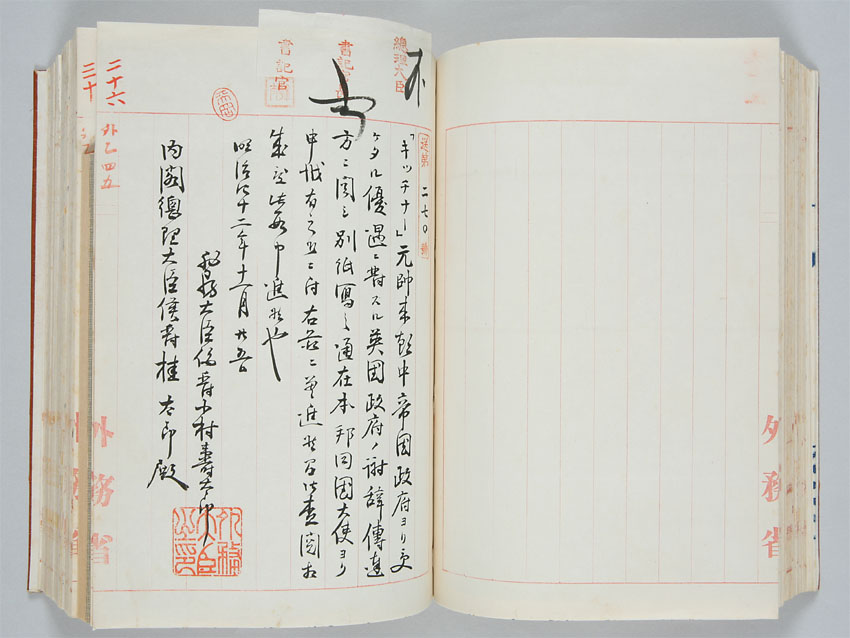 總理大臣
書記官
書記官
送第二七〇號
「キッチナー」元帥来朝中帝國政府ヨリ受
ケタル優遇ニ對スル英國政府ノ謝辭傳達
方ニ関シ別紙寫之通在本邦同國大使ヨリ
申越有之候ニ付右茲ニ差進候間御査閲相
成度此段申進候也
明治四十二年十一月廿五日
外務大臣伯爵小村壽太郎
内閣總理大臣侯爵桂太郎殿
二十六
外乙四五
三十
外務省
外務省